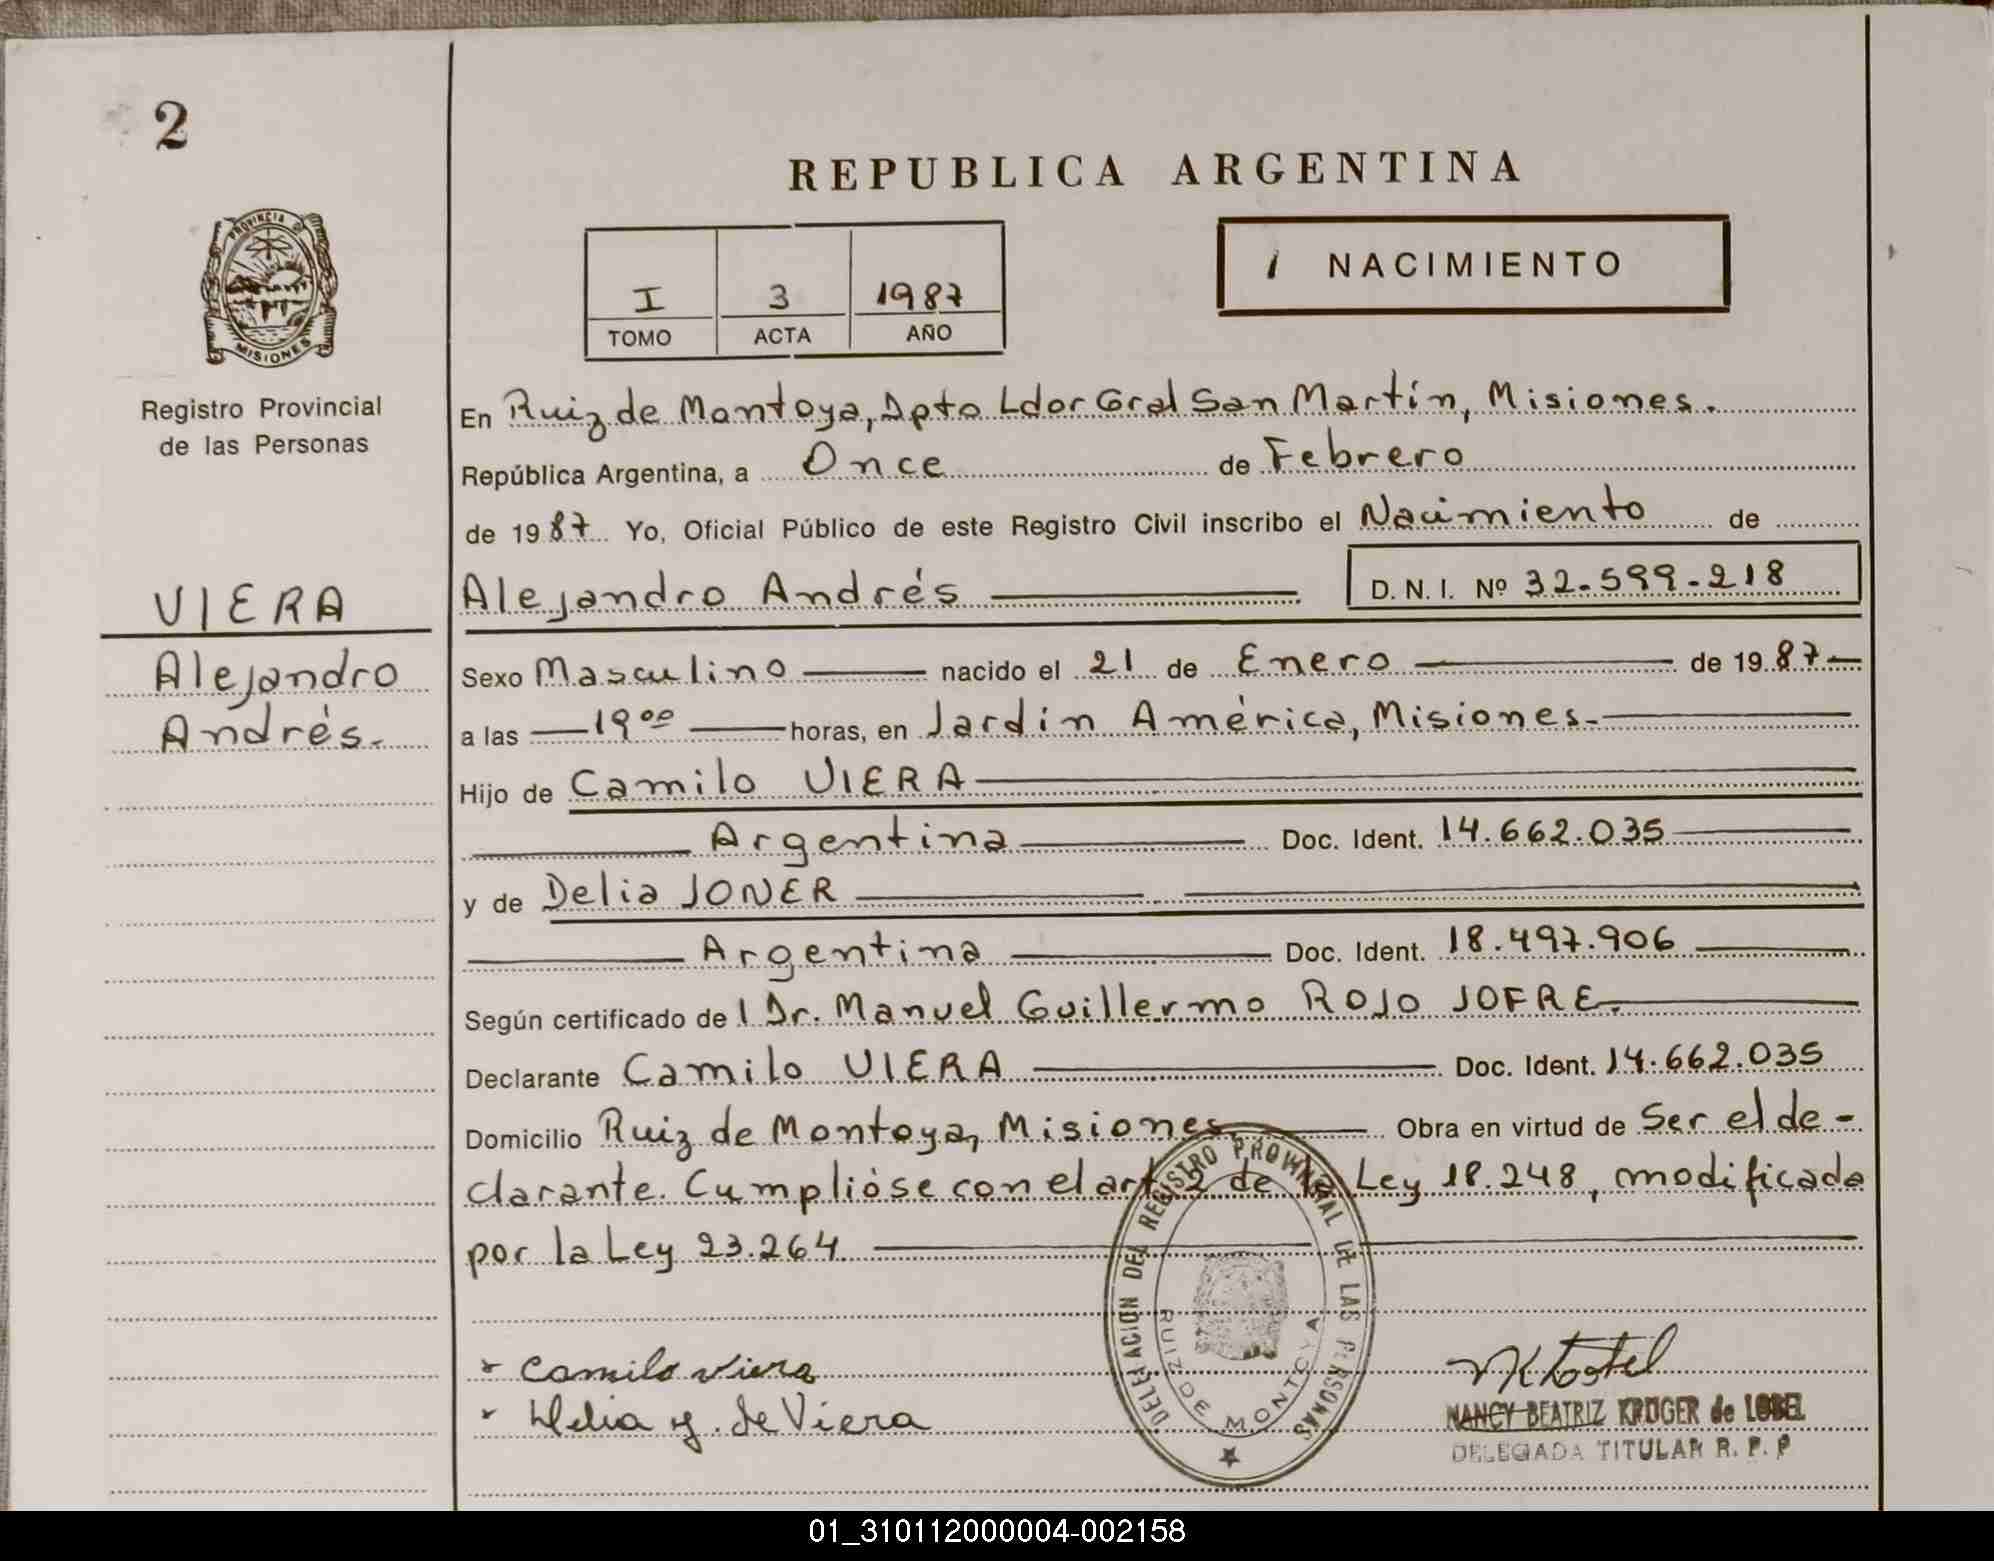 2
REPUBLICA ARGENTINA
PROVINCIA D
MISIONES
Registro Provincial
de las Personas
I 3 1987
TOMO ACTA AÑO
1 NACIMIENTO
En Ruiz de Montoya, Dpto Ldor Gral San Martín, Misiones.
República Argentina, a Once de Febrero
de 1987 Yo, Oficial Público de este Registro Civil inscribo el Nacimiento de
VIERA
Alejandro
Andrés.
Alejandro Andrés D. N. I. Nº 32.599.218
Sexo Masculino nacido el 21 de Enero de 1987
a las 19 00 horas, en Jardín América, Misiones.
Hijo de Camilo VIERA
Argentina Doc. Ident. 14.662.035
y de Delia JONER
Argentina Doc. Ident. 18.497.906
Según certificado de l Dr. Manuel Guillermo ROJO JOFRE.
Declarante Camilo VIERA Doc. Ident. 14.662.035
Domicilio Ruiz de Montoya, Misiones Obra en virtud de Ser el de-
clarante. Cumplióse con el art. 2 de la Ley 18.248, modificada
por la Ley 23.264
DELEGACION DEL REGISTRO PROVINCIAL DE LAS PERSONAS
RUIZ DE MONTOYA
Camilo Viera
Delia J. de Viera
NANCY BEATRIZ KRÜGER de LOBEL
DELEGADA TITULAR R. P. P
01_310112000004-002158